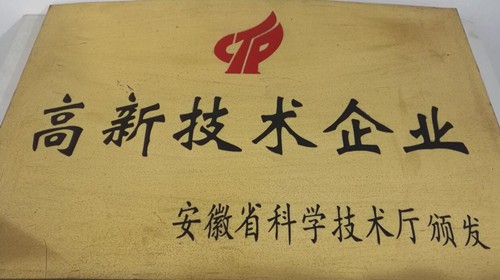 CTP
高新技术企业
安徽省科学技术厅颁发